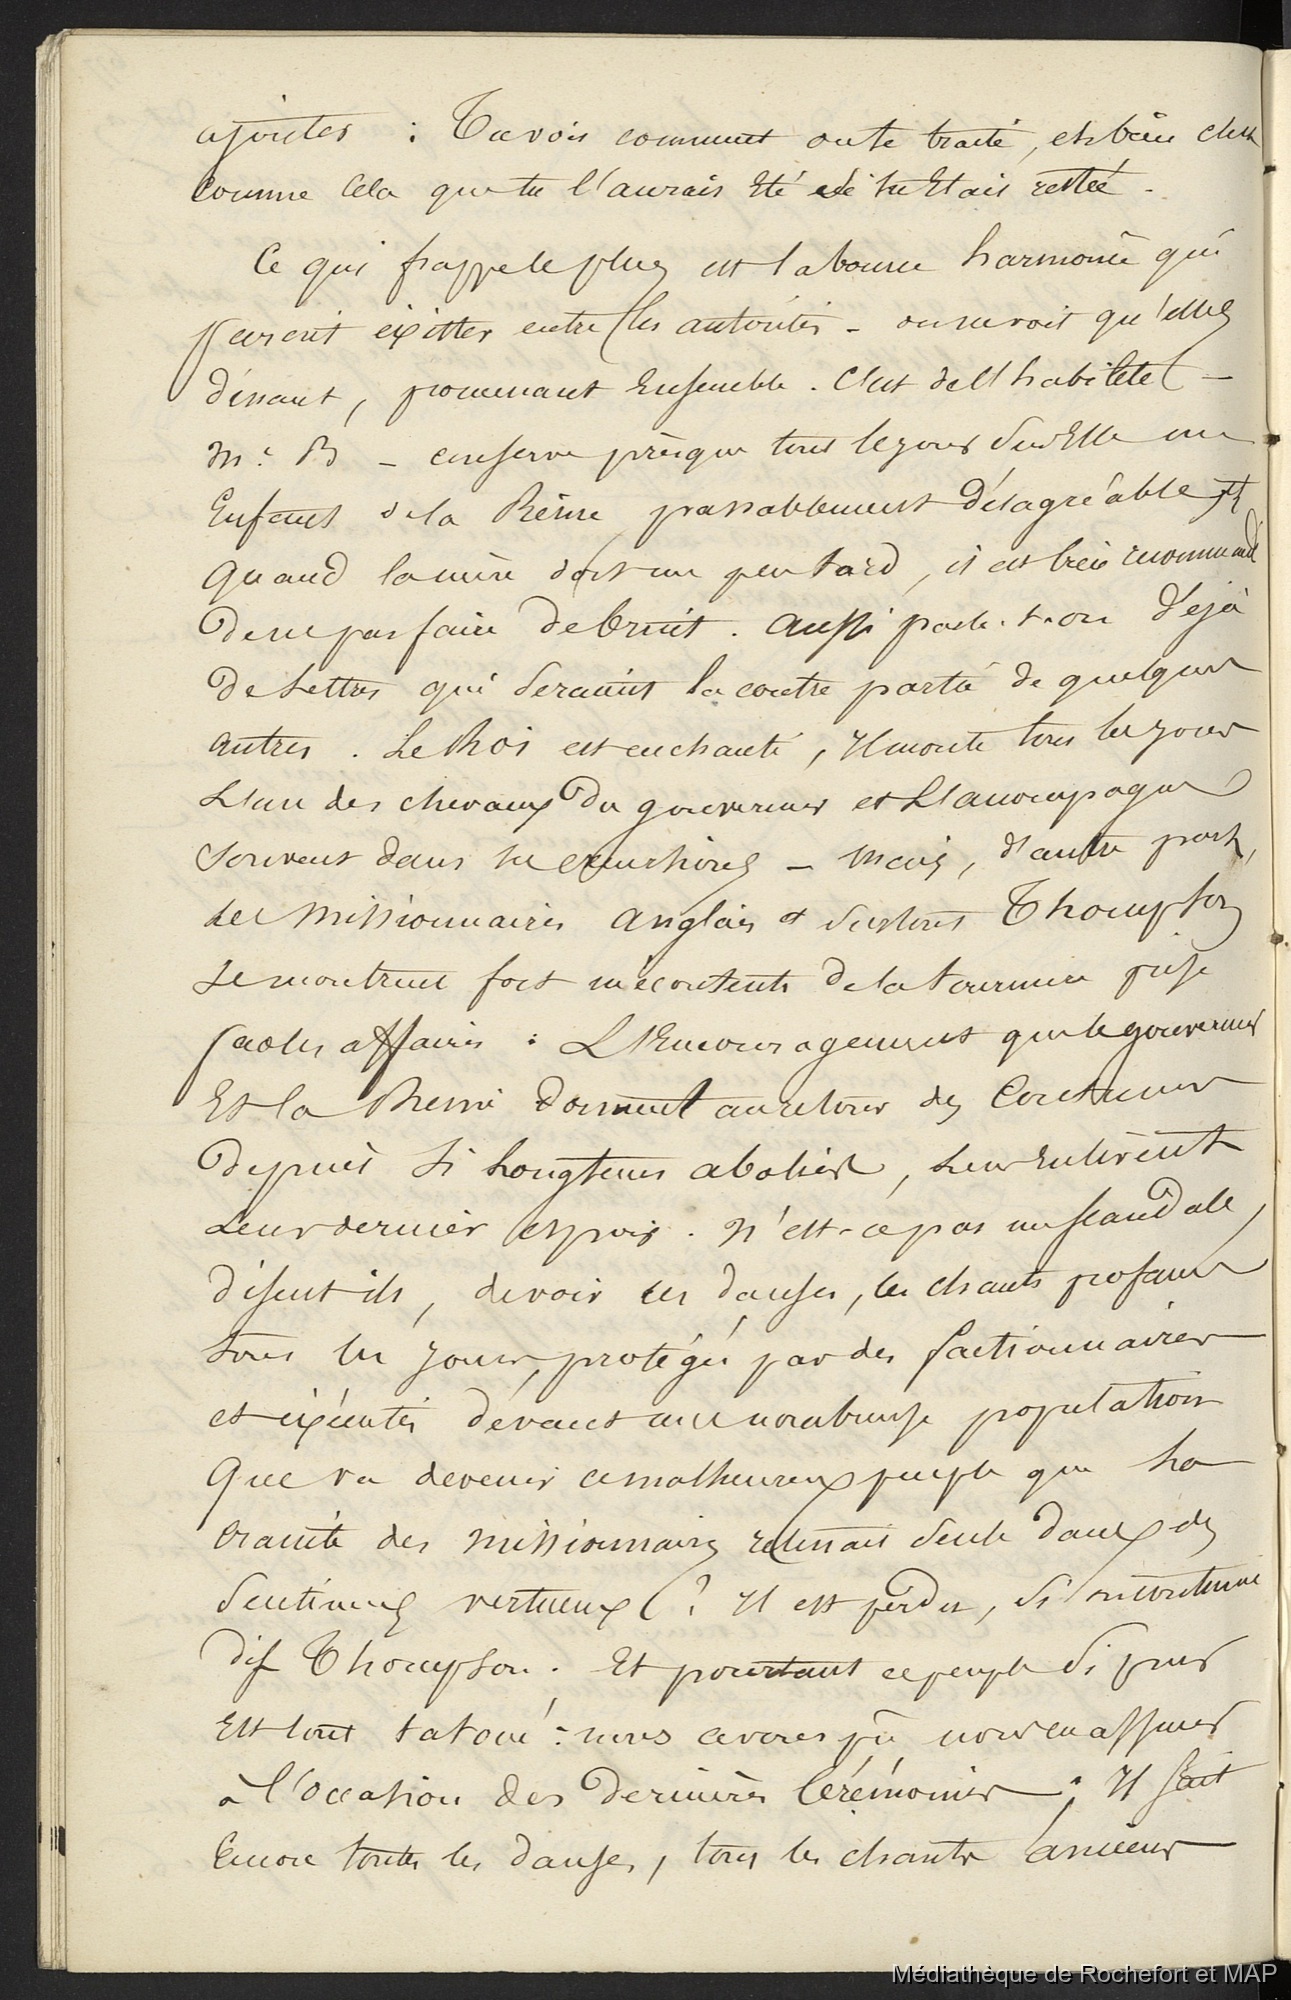 ajouter : Tu vois comment on te traite, eh bien c'est
comme cela que tu l'aurais Eté si tu Etais restée -
Ce qui frappe le plus est la bonne harmonie qui
parait exister entre les autorités - on ne voit qu'elles
dinant, promenant Ensemble. C'est de l'habileté -
Mr B - conserve presque tous les jours Une
Enfant de la Reine passablement désagréable et
Quand la mère dort un peu tard, il est bien recommandé
de ne pas faire de bruit. Aussi parle-t-on déjà
de Lettres qui seraient la contre partie de quelques
autres. Le Roi est enchanté, Il monte tous les jours
L'un des chevaux du gouverneur et L'accompagne
souvent dans ses excursions - Mais, d'autre part,
Les Missionnaires Anglais et surtout Thompson
Se montrent fort mécontents de la tournure prise
par les affaires : L'Encouragement que le gouverneur
Et la Reine donnent au retour des Coutumes
depuis si Longtems abolies, Leur Enlèvent
Leur dernier espoir. N'est-ce pas un scandale,
disent ils, de voir ces danses, ces chants profanes
tous les jours, protégés par des factionnaires
et exécutés devant une nombreuse population
Que va devenir ce malheureux peuple que La
crainte des Missionnaires retenait seule dans des
Sentimens vertueux ? Il est perdu, si on continue
dit Thompson. Et pourtant ce peuple si pur
Est tout tatoué : nous avons pu nous en assurer
à l'occasion des dernières Cérémonies ; Il Sait
Encore toutes les danses, tous les chants anciens
Médiathèque de Rochefort et MAP